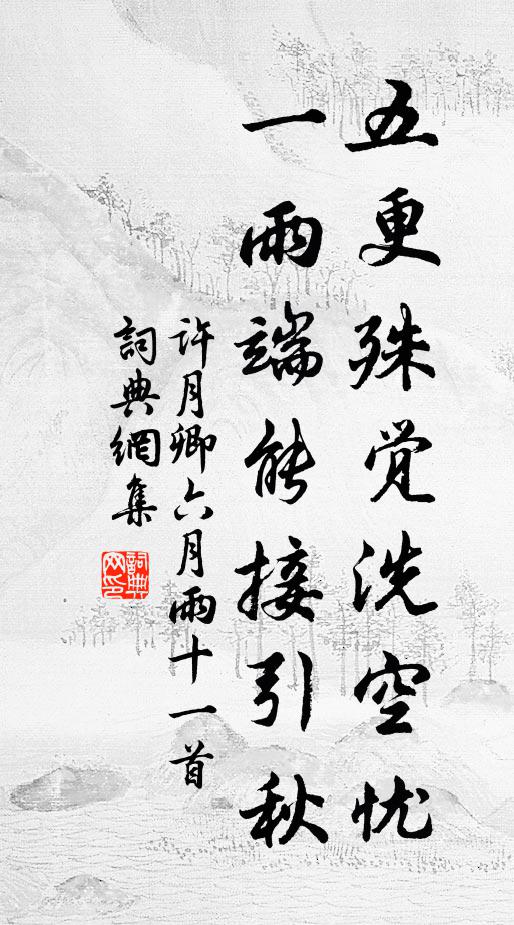 五更殊觉洗空忧
一雨端能接引秋
许月卿六月雨十一首
詞典網集
詞典网印